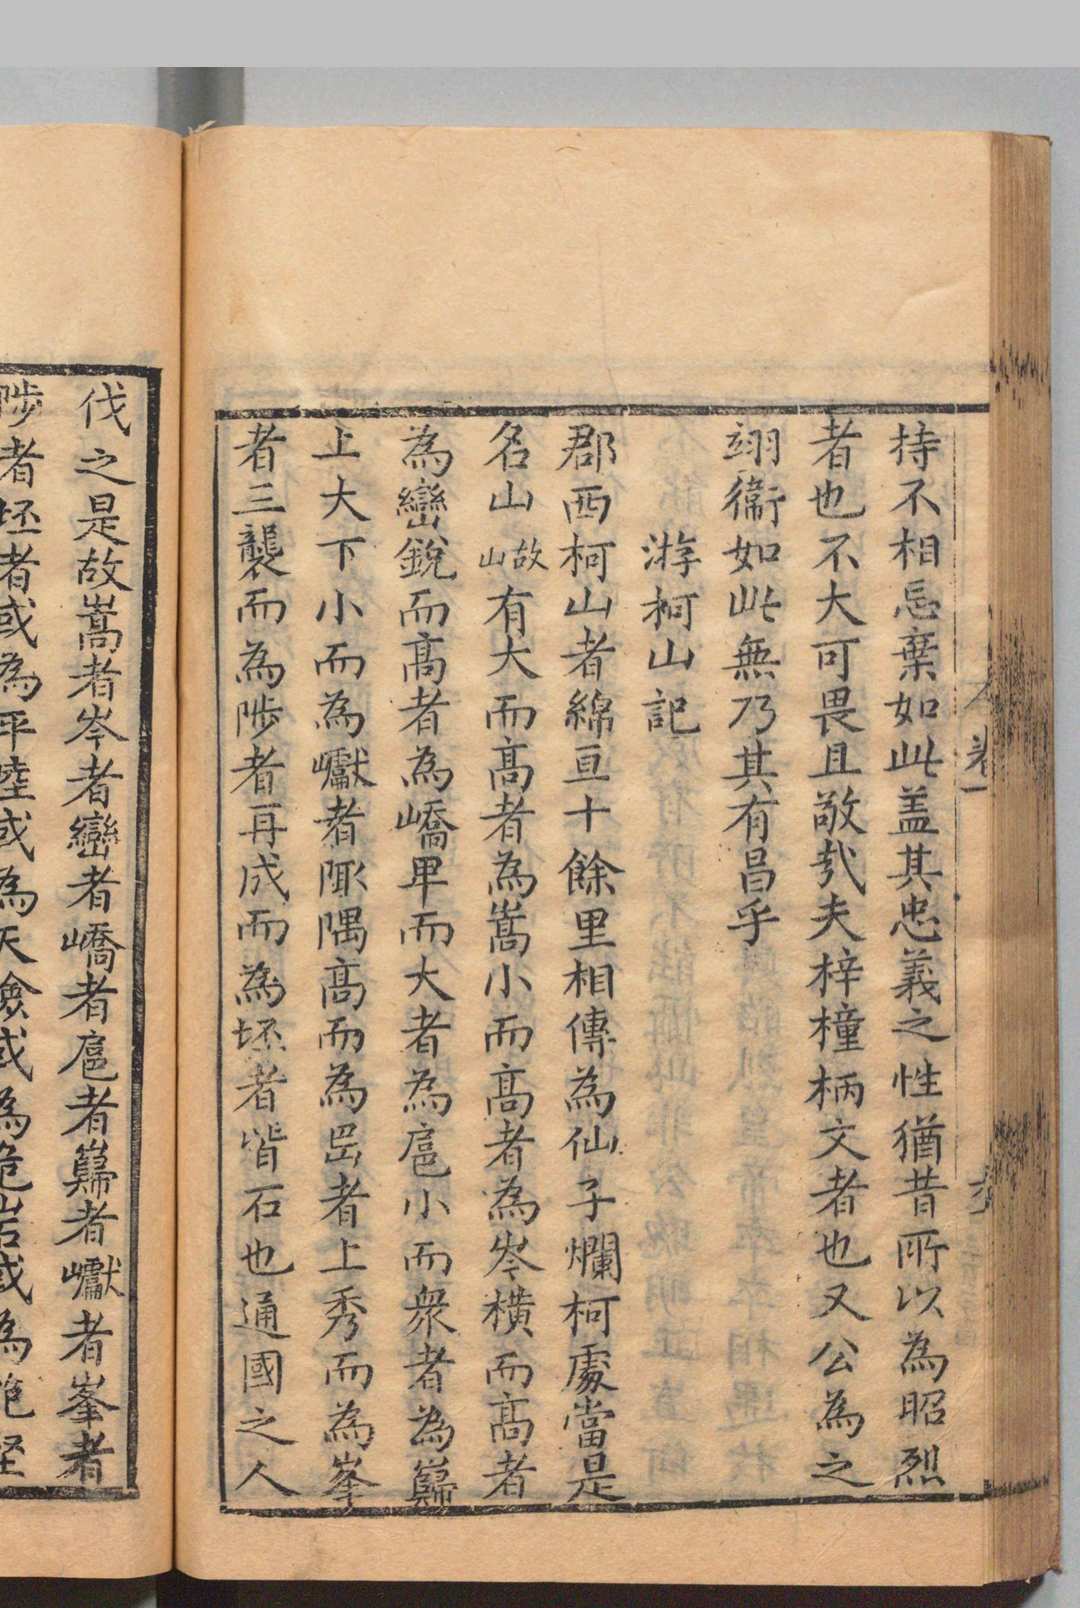 卷一
持不相忘棄如此盖其忠義之性猶昔所以為昭烈
者也不大可畏且敬㢤夫梓橦柄文者也又公為之
翊衞如此無乃其有昌乎
游柯山記
郡西柯山者綿亘十餘里相傳為仙子爛柯處當是
名山故山有大而髙者為嵩小而髙者為岑橫而髙者
為巒銳而髙者為嶠卑而大者為扈小而衆者為巋
上大下小而為巘者陬隅髙而為岊者上秀而為峯
者三襲而為陟者再成而為坯者皆石也通國之人
伐之是故嵩者岑者巒者嶠者扈者巋者巘者峯者
陟者坯者或為平陸或為天險或為危岩或為絶